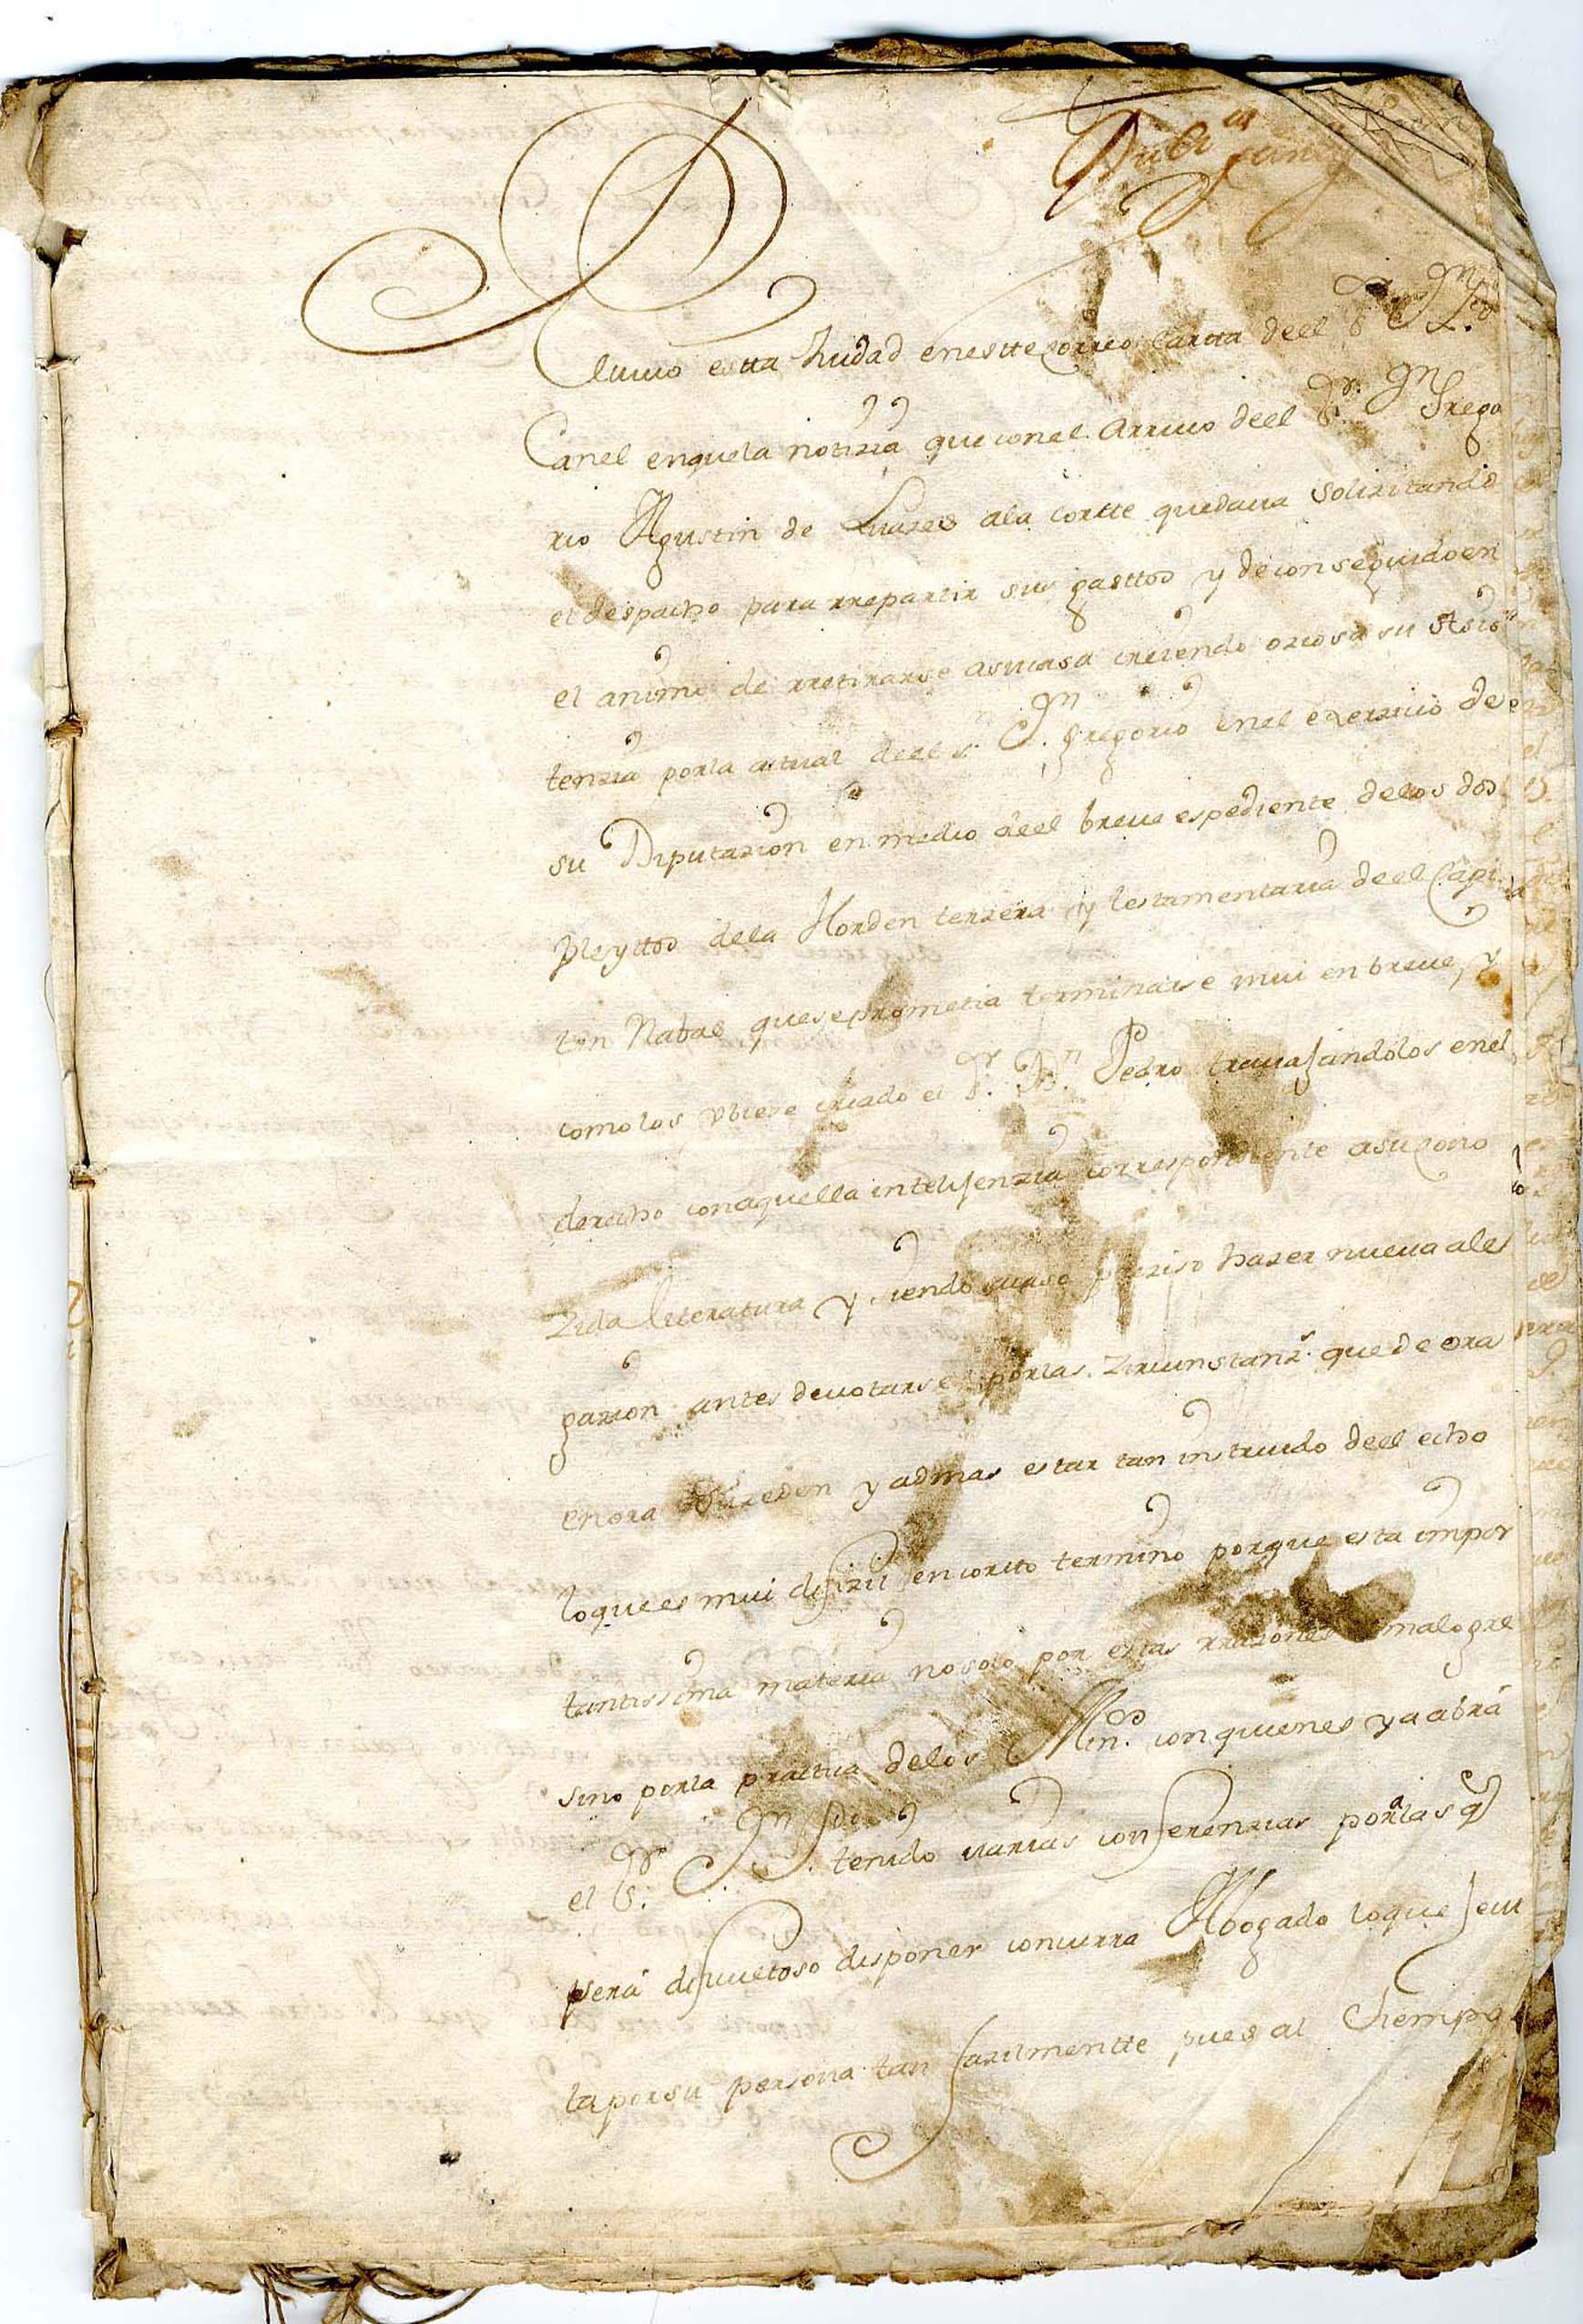 Rezivio estta Ziudad eneste Correo Cartta deel S.r D.n P.dro
Canel enquela notizia que conel Arrivo deel S.r D.n Grego
rio Agustin de Livares ala Cortte quedava solizitando
el despacho para rrepartir sus gasttos y deconseguidoen
el animo de rretirarse asucasa creiendo oziosa su Asis
tenzia porla actual deel S.r D.n Gregorio enel exerzizio de
su Diputazion en medio deel breve espediente delos dos
Pleyttos dela Horden terzera y testamentaria deel Capi
tan Nabas queseprometia terminarse mui en breve, y
comolos vbiese criado el S.r D.n Pedro travajandolos enel
derecho conaquella intelijenzia correspondiente asucono
zida literatura y siendo preziso hazer nueva ales
gazion antes devotarse porlas zircunstanz.s que de ora
enora suzeden y admas estar tan instruido deel echo
loquees mui difizil encorto termino porque esta impor
tantissima materia nosolo por estas rrazones malogre
sino porla practica delos Min.os conquienes yaabrá
el S.r D.n tenido varias conferenzias porlas q
Será difficultoso disponer concurra Abogado loque
taporsu persona tan fazilmentte pues al tiempo